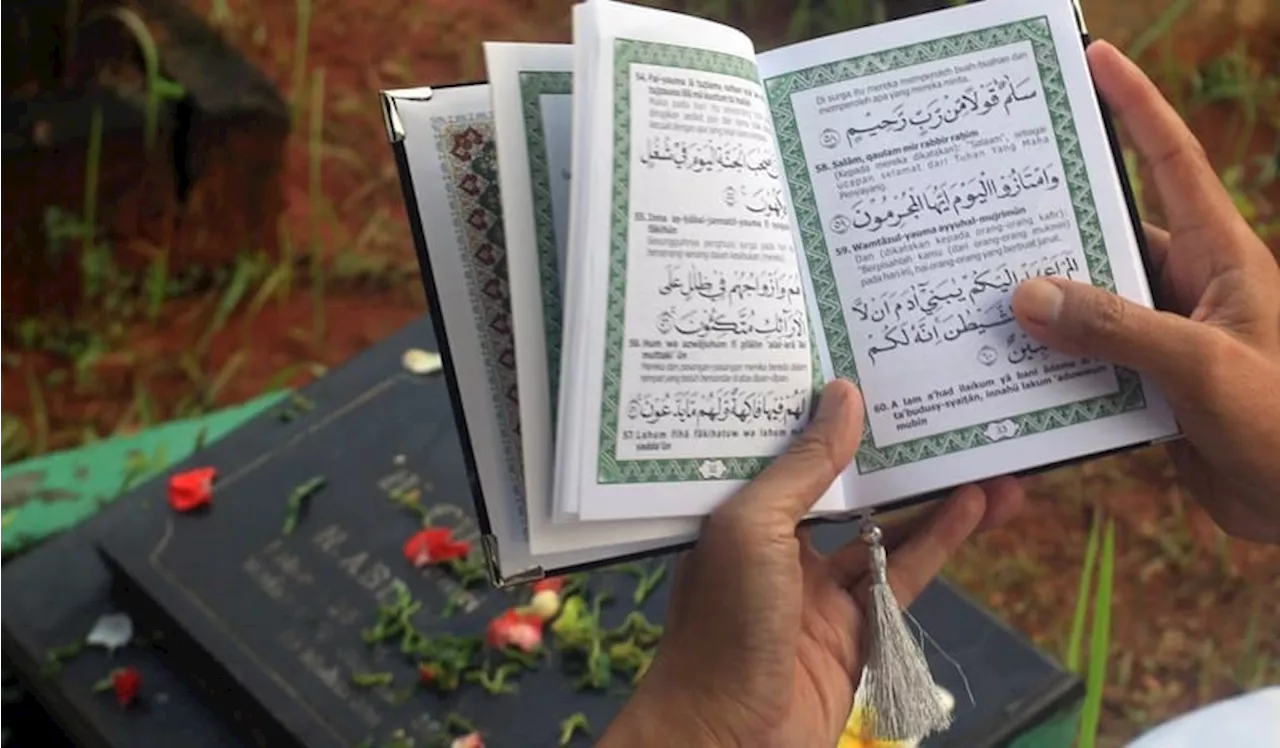 54. Fal-yauma lā tuẓlamu nafsun
Maka pada hari itu seseorang tidak
الْجَنَّةِ الْيَوْمَ فِيْ شُغُلٍ
55. Inna aṣ-ḥābal-jannatil-yauma fī
fākihūn
Sesungguhnya penghuni surga pada hari
bersenang-senang dalam kesibukan (mereka).
هُمْ وَاَزْوَاجُهُمْ فِيْ ظِلٰلٍ عَلَى
الْاَرَاۤىِٕكِ مُتَّكِـُٔوْنَ
56. Hum wa azwājuhum fī ẓilālin 'alal-arā'iki
muttaki'ūn
Mereka dan pasangan-pasangan mereka berada dalam
tempat yang teduh bersandar di atas dipan-dipan.
لَهُمْ فِيْهَا فَاكِهَةٌ وَّلَهُمْ مَّا يَدَّعُوْنَ
57. Lahum fīhā fākihatuw wa lahum mā
yadda'ūn
Di surga itu mereka memperoleh buah-buahan dan
memperoleh apa yang mereka minta.
سَلٰمٌ قَوْلًا مِّنْ رَّبٍّ رَّحِيْمٍ ٥٨
58. Salām, qaulam mir rabbir raḥīm
(Kepada mereka dikatakan): "Salaam", sebagai
ucapan selamat dari Tuhan Yang Maha
Penyayang.
وَامْتَازُوا الْيَوْمَ اَيُّهَا الْمُجْرِمُوْنَ ٥٩
59. Wamtāzul-yauma ayyuhal-mujrimūn
Dan (dikatakan kepada orang-orang kafir):
"Berpisahlah kamu (dari orang-orang mukmin)
pada hari ini, hai orang-orang yang berbuat jahat.
اَلَمْ اَعْهَدْ اِلَيْكُمْ يٰبَنِيْٓ اٰدَمَ اَنْ لَّا
الشَّيْطٰنَ اِنَّهٗ لَكُمْ
٦٠
60. A lam a'had ilaikum yā banī ādama al lā
ta'budusy-syaiṭān, innahū lakum 'aduwwum
mubīn
33